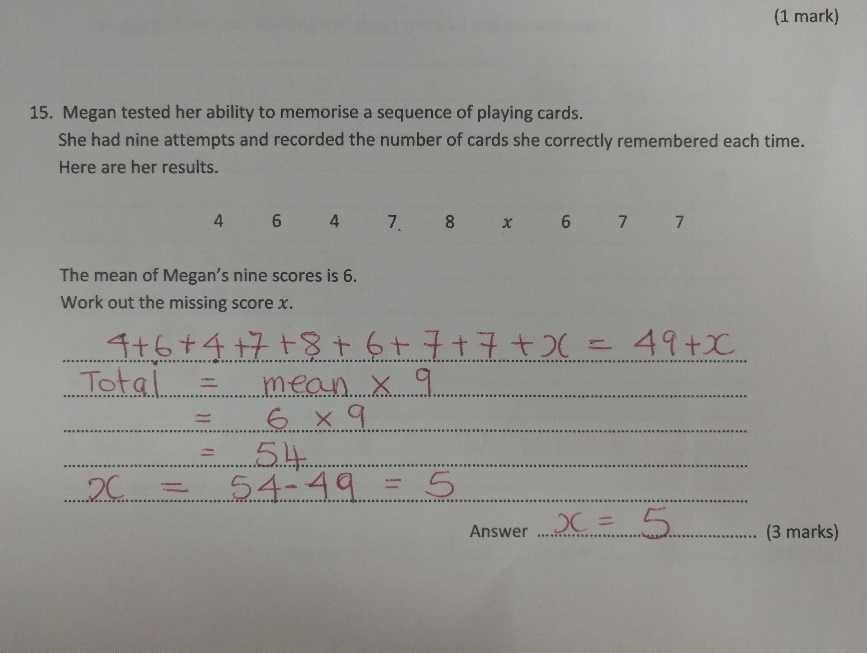 (1 mark)
15. Megan tested her ability to memorise a sequence of playing cards.
She had nine attempts and recorded the number of cards she correctly remembered each time.
Here are her results.
4 6 4 7 8 x 6 7 7
The mean of Megan's nine scores is 6.
Work out the missing score x.
4+6+4+7+8+6+7+7+x = 49+x
Total = mean × 9
= 6 × 9
= 54
x = 54-49 = 5
Answer x = 5 (3 marks)